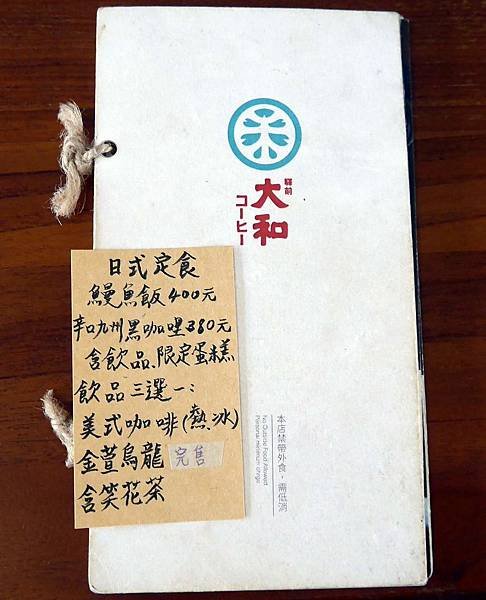 驛前
大和
コーヒー
日式定食
鰻魚飯400元
辛口九州黑咖哩380元
含飲品、限定蛋糕
飲品三選一:
美式咖啡(熱.冰)
金萱烏龍 完售
含笑花茶
本店禁帶外食，需低消
No Outside Food Allowed
Personal minimum charge